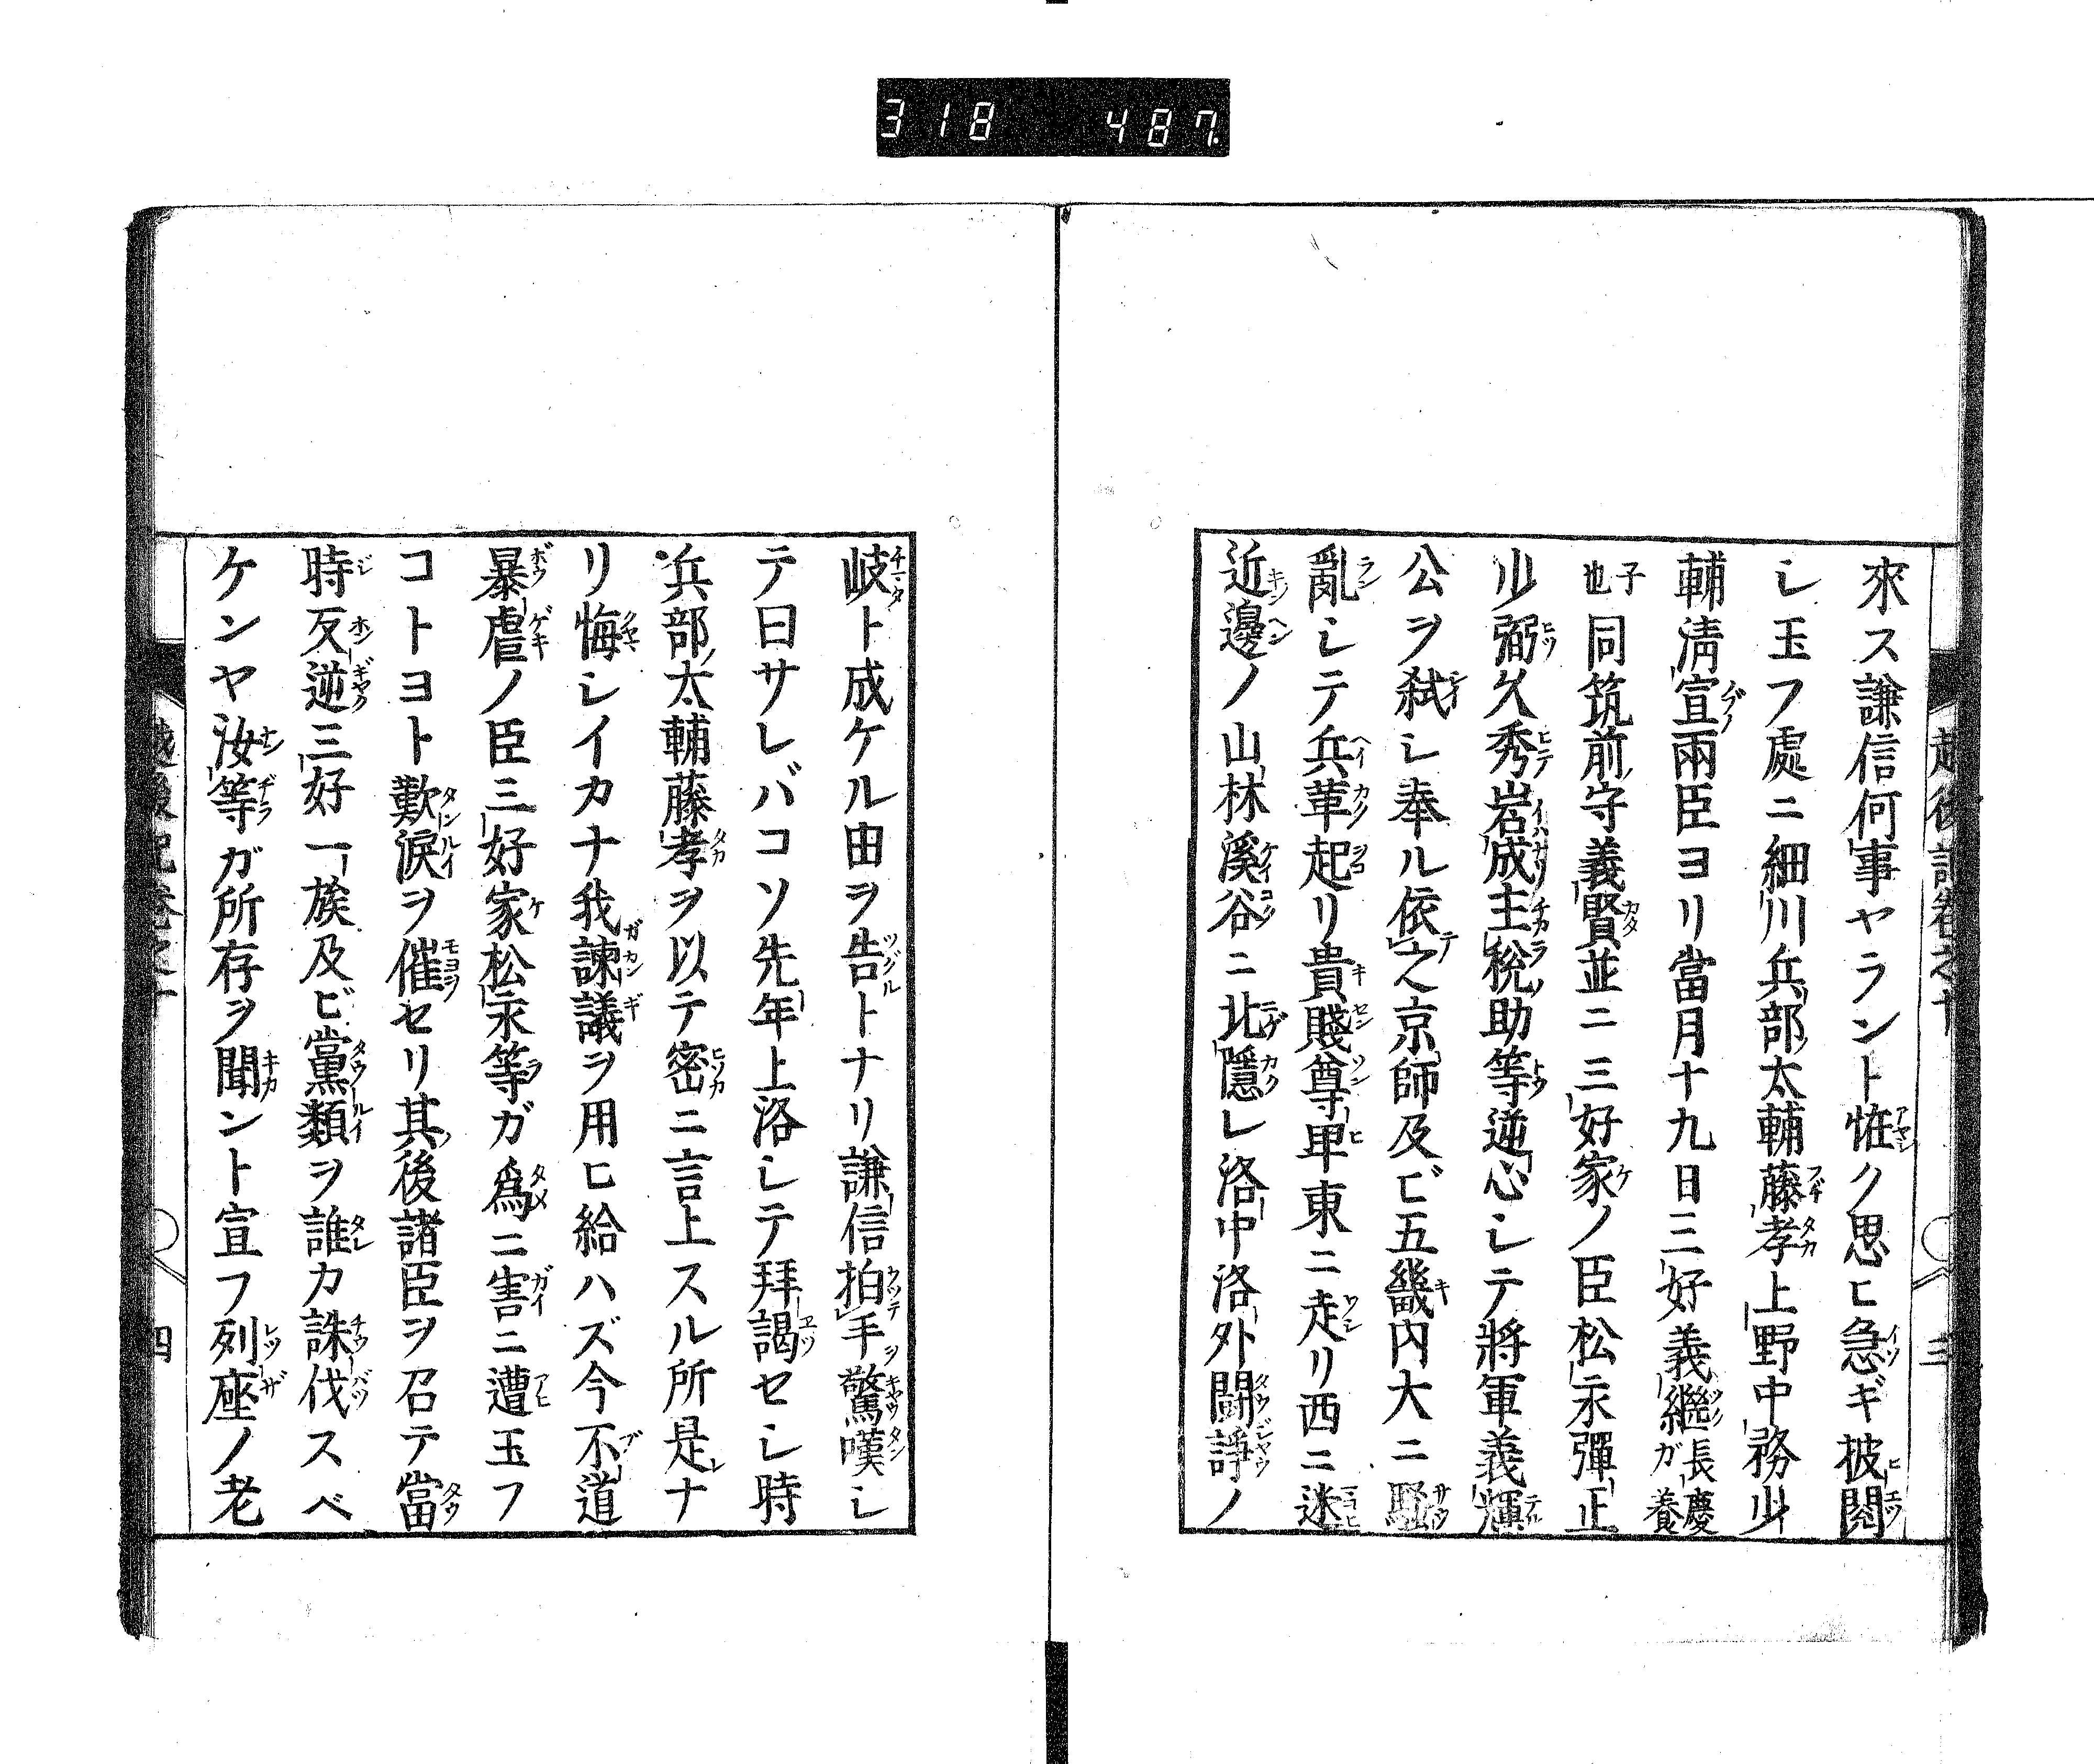 318 487
來ス謙信何事ヤラント恠ク思ヒ急ギ披閲
シ玉フ處ニ細川兵部太輔藤孝上野中務少
輔淸宣兩臣ヨリ當月十九日三好義繼長慶ガ養
子也同筑前守義賢並ニ三好家ノ臣松永彈正
少弼久秀岩成主税助等逆心シテ將軍義輝
公ヲ弑シ奉ル依之京師及ビ五畿内大ニ騷
亂シテ兵革起リ貴賤尊卑東ニ走リ西ニ迷
近邊ノ山林溪谷ニ北隱レ洛中洛外鬪諍ノ
岐ト成ケル由ヲ告トナリ謙信拍手驚嘆シ
テ曰サレバコソ先年上洛シテ拜謁セシ時
兵部太輔藤孝ヲ以テ密ニ言上スル所是ナ
リ悔シイカナ我諫議ヲ用ヒ給ハズ今不道
暴虐ノ臣三好家松永等ガ爲ニ害ニ遭玉フ
コトヨト歎淚ヲ催セリ其後諸臣ヲ召テ當
時反逆三好一族及ビ黨類ヲ誰カ誅伐スベ
ケンヤ汝等ガ所存ヲ聞ント宣フ列座ノ老
四